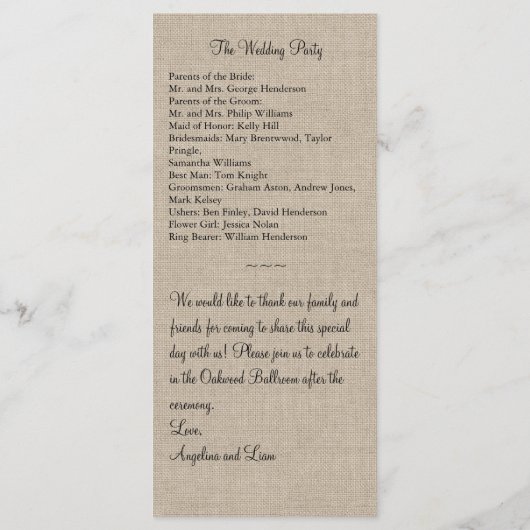 The Wedding Party
Parents of the Bride:
Mr. and Mrs. George Henderson
Parents of the Groom:
Mr. and Mrs. Philip Williams
Maid of Honor: Kelly Hill
Bridesmaids: Mary Brentwwod, Taylor
Pringle,
Samantha Williams
Best Man: Tom Knight
Groomsmen: Graham Aston, Andrew Jones,
Mark Kelsey
Ushers: Ben Finley, David Henderson
Flower Girl: Jessica Nolan
Ring Bearer: William Henderson
~~~
We would like to thank our family and
friends for coming to share this special
day with us! Please join us to celebrate
in the Oakwood Ballroom after the
ceremony.
Love,
Angelina and Liam